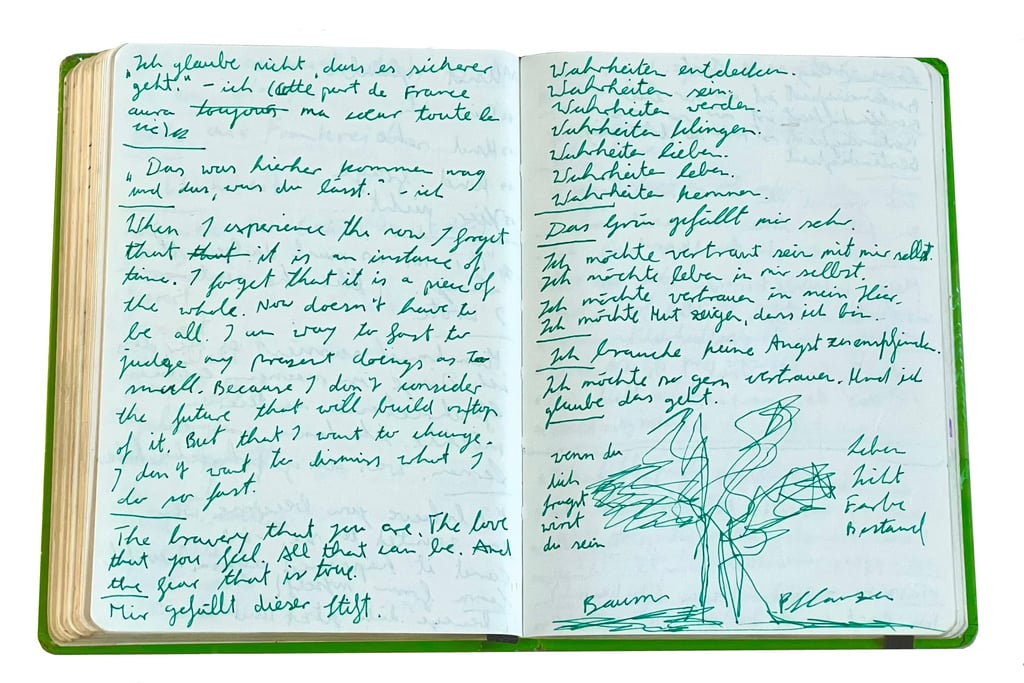 „Ich glaube nicht, dass es sicherer
geht." – ich (Cette part de France
aura toujours ma sœur toute la
vie)
„Das was hierher kommen mag
und das, was du lässt." – ich
When I experience the now I forget
that that it is an instance of
time. I forget that it is a piece of
the whole. Now doesn't have to
be all. I am way to fast to
judge my present doings as to
small. Because I don't consider
the future that will build ontop
of it. But that I want to change.
I don't want to dismiss what I
do so fast.
The bravery that you are. The love
that you feel. All that can be. And
the fear that is true.
Mir gefällt dieser Stift.
Wahrheiten entdecken.
Wahrheiten sein.
Wahrheiten werden.
Wahrheiten klingen.
Wahrheiten lieben.
Wahrheiten leben.
Wahrheiten kennen.
Das Grün gefällt mir sehr.
Ich möchte vertraut sein mit mir selbst.
Ich möchte leben in mir selbst.
Ich möchte vertrauen in mein Hier.
Ich möchte Mut zeigen, dass ich bin.
Ich brauche keine Angst zu empfinden.
Ich möchte so gern vertrauen. Und ich
glaube das geht.
wenn du
dich
fragst
wirst
du sein
Leben
Licht
Farbe
Bestand
Baum
Pflanzen